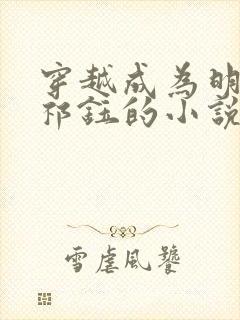 穿越成为明
祁钰的小说
雪虐风饕